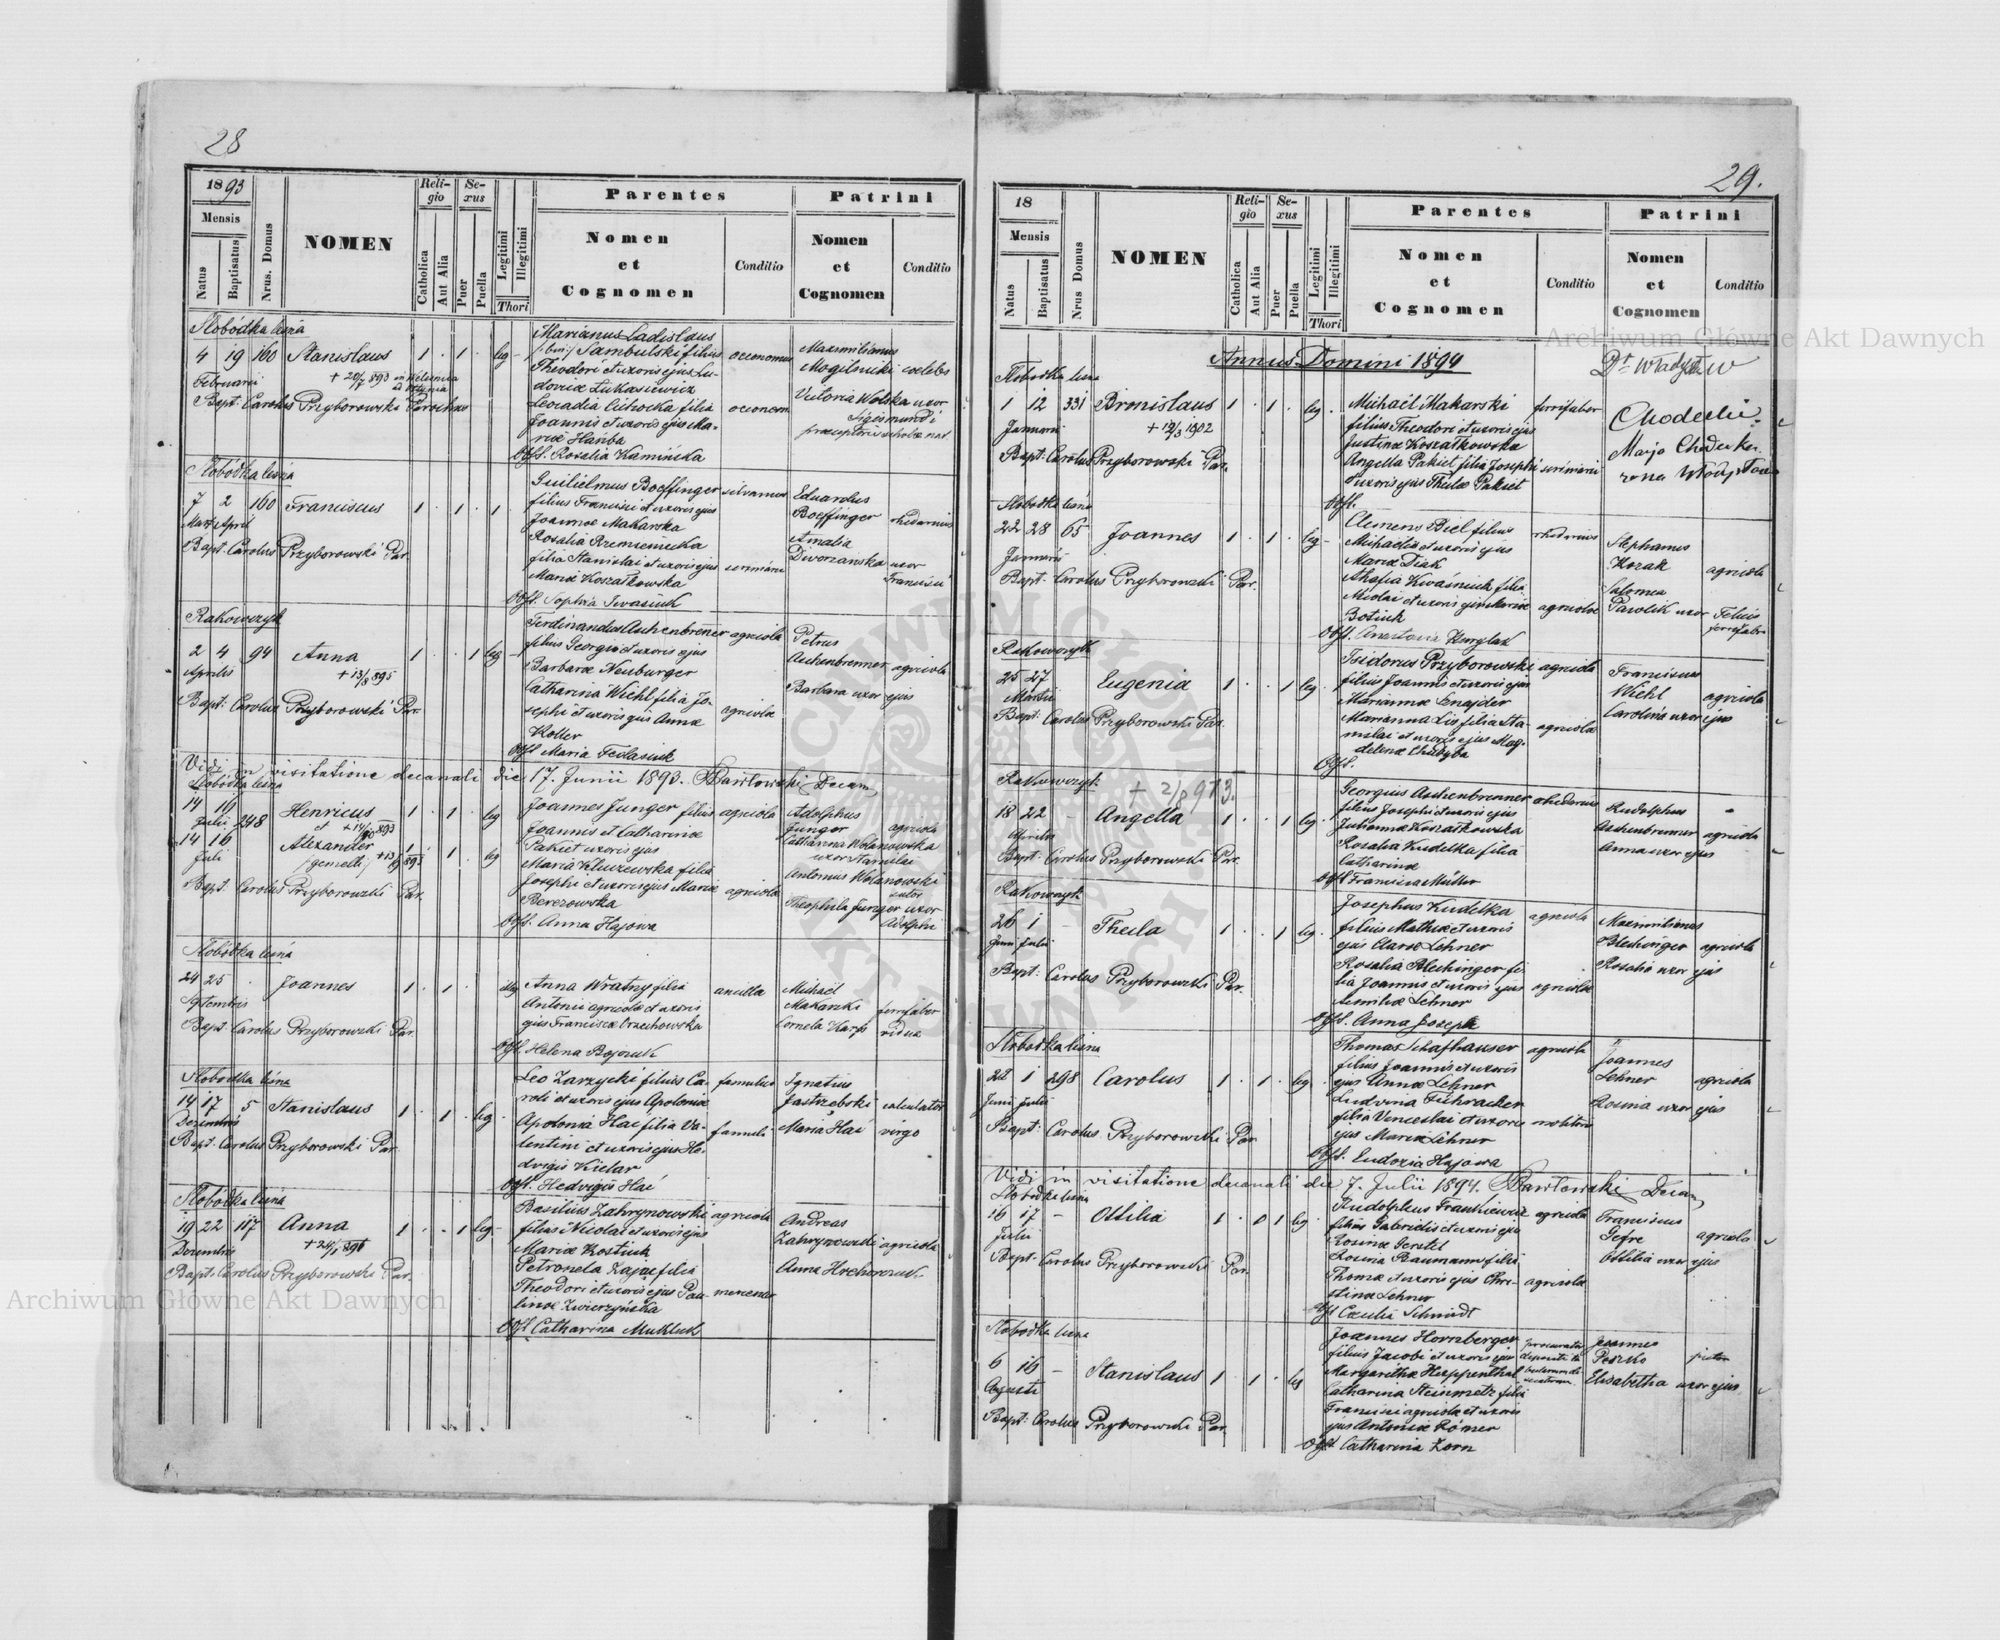 28
1893
Mensis
Natus
Baptisatus
Nrus. Domus
NOMEN
Religio
Catholica
Aut Alia
Sexus
Puer
Puella
Legitimi
Illegitimi
Thori
Parentes
Nomen
et
Cognomen
Conditio
Patrini
Nomen
et
Cognomen
Conditio
Słobódka leśna
Marianus Ladislaus
4 19 160 Stanislaus 1 . 1 . leg
Sambulski filius oeconomus
Maximilianus
Mogilnicki coelebs
Februarii
Theodori et uxoris ejus Lu-
doviæ Łukasiewicz
Bapt: Carolus Przyborowski Parochus
Leocadia Cichocka filia oeconom
Victoria Wolska uxor
Sigismundi
Joannis et uxoris ejus Ma-
riæ Hańba
Obst. Rosalia Kamińska
Słobódka leśna
7 2 160 Franciscus 1 . 1 . 1
Guilielmus Boeffinger silvanus
Eduardus
Boeffinger rhedarius
filius Francisci et uxoris ejus
Mart. April
Joannæ Makarska
Amalia
Bapt. Carolus Przyborowski Par.
Rosalia Rzemieniecka
Dworzanska uxor
Francisci
filia Stanislai et uxoris ejus
Mariæ Koszałkowska
Obst. Sophia Iwasiuk
Rakowczyk
2 4 94 Anna 1 . . 1 leg
Ferdinandus Aschenbrenner agricola
Petrus
Aschenbrenner agricola
filius Georgii et uxoris ejus
Aprilis + 13/8 895
Barbaræ Neuburger
Barbara uxor ejus
Bapt: Carolus Przyborowski Par.
Catharina Wiehl filia Jo-
sephi et uxoris ejus Annæ agricolæ
Koller
Obst. Maria Fedasiuk
Vidi in visitatione decanali die 17. Junii 1893. Pawłowski Decan,
Słobódka leśna
14 16 248 Henricus 1 . 1 . leg
Julii et
14 16 Alexander 1 . 1 . leg
Juli /gemelli/
Joannes Junger filius agricola
Joannis et Catharinæ
Pakiet uxoris ejus
Maria Kluczewska filia
Josephi et uxoris ejus Mariæ agricolæ
Berezowska
Adolphus
Junger agricola
Catharina Wolanowska
uxor Stanislai
Antonius Wolanowski
Theophila Junger uxor
Adolphi
Bapt. Carolus Przyborowski Par.
Obst. Anna Hajowa
Słobódka leśna
24 25 Joannes 1 . 1 . illeg
Septembris
Anna Wratny filia ancilla
Antonii agricolæ et uxoris
ejus Franciscæ Orzechowska
Michael
Makarski ferrifaber
Cornela Karp vidua
Bapt. Carolus Przyborowski Par.
Obst. Helena Bojczuk
Słobódka leśna
14 17 5 Stanislaus 1 . 1 . leg
Decembris
Leo Zarzycki filius Ca- famulus
roli et uxoris ejus Apoloniæ
Ignatius
Jastrzebski calculator
Bapt. Carolus Przyborowski Par.
Apolonia Hać filia Va- famuli
Maria Hać virgo
lentini et uxoris ejus He-
dvigis Kielar
Obst. Hedvigis Hać
Słobódka leśna
19 22 117 Anna 1 . . 1 leg
Decembris
Basilius Zahrynowski agricola
filius Nicolai et uxoris ejus
Mariæ Kostiuk
Andreas
Zahrynowski agricola
Bapt. Carolus Przyborowski Par.
Petronela Zając filia
Anna Hrehorczuk
Theodori et uxoris ejus Pau-
linæ Zwierzyńska
Obst Catharina Mukluk
29.
18
Mensis
Natus
Baptisatus
Nrus Domus
NOMEN
Religio
Catholica
Aut Alia
Sexus
Puer
Puella
Legitimi
Illegitimi
Thori
Parentes
Nomen
et
Cognomen
Conditio
Patrini
Nomen
et
Cognomen
Conditio
Annus Domini 1894
Słobodka leśna
Dr Władysław
1 12 331 Bronislaus 1 . 1 . leg.
Januarii + 12/3 1902
Michaël Makarski ferrifaber
filius Theodori et uxoris ejus
Justinæ Koszałkowska
Bapt: Carolus Przyborowski Par.
Angella Pakiet filia Josephi
et uxoris ejus Theclæ Pakiet
Obst.
Słobodka leśna
22 28 65 Joannes 1 . 1 . leg
Januarii
Clemens Biel filius rhedarius
Michaelis et uxoris ejus
Mariæ Diak
Stephanus
Kozak agricola
Bapt: Carolus Przyborowski Par.
Ahafia Kwaśniuk filia
Nicolai et uxoris ejus Mariæ agricolæ
Botiuk
Salomea
Pawlik uxor Felicis
ferrifabri
Obst. Anastasia Kurylak
Rakowczyk
25 27 Eugenia 1 . . 1 leg
Martii
Isidorus Przyborowski agricola
filius Joannis et uxoris ejus
Mariannæ Snajder
Franciscus
Wiehl agricola
Carolina uxor ejus
Bapt. Carolus Przyborowski Par.
Marianna Lis filia Sta-
nislai et uxoris ejus Mag- agricolæ
delenæ Chudyba
Obst.
Rakowczyk
+ 2/8 913.
18 22 - Angella 1 . . 1 leg
Aprilis
Georgius Aschenbrenner rhedarius
filius Josephi et uxoris
Juliannæ Koszałkowska
Rudolphus
Aschenbrenner agricola
Anna uxor ejus
Bapt. Carolus Przyborowski Par.
Rosalia Kudelka filia
Catharinæ
Obst Francisca Müller
Rakowczyk
26 1 - Thecla 1 . . 1 leg
Juni Julii
Josephus Kudelka agricola
filius Mathiæ et uxoris
ejus Claræ Lehner
Maximilianus
Blechinger agricola
Rosalia uxor ejus
Bapt. Carolus Przyborowski Par.
Rosalia Blechinger fi-
lia Joannis et uxoris ejus agricolæ
Lehner
Obst. Anna Joseph
Słobodka leśna
28 1 298 Carolus 1 . 1 . leg
Juni Julii
Thomas Schafhauser agricola
filius Joannis et uxoris
ejus Annæ Lehner
Joannes
Lehner agricola
Rosina uxor ejus
Bapt: Carolus Przyborowski Par
Ludvina Führacher
filia Venceslai et uxoris molitor
ejus Mariæ Lehner
Obst. Eudoxia Hajowa
Vidi in visitatione decanali die 7. Julii 1894. Pawłowski Decan,
Słobodka leśna
16 17 - Ottilia 1 . 0 1 leg
Julii
Rudolphus Frankiewicz agricola
filius Gabrielis et uxoris ejus
Rosinæ Gerstel
Franciscus
Gefre agricola
Ottilia uxor ejus
Bapt. Carolus Przyborowski Par
Rosina Baumann filia
Thomæ et uxoris ejus Chri- agricolæ
stinæ Lehner
Obst Cæcilia Schmidt
Słobodka leśna
6 16 - Stanislaus 1 . 1 . leg
Augusti
Joannes Hornberger
filius Jacobi et uxoris ejus
Margaritha Heppenthal
Joannes
Peszko pictor
Elisabetha uxor ejus
Bapt: Carolus Przyborowski Par
Catharina Steinmetz filia
Francisci agricolæ et uxoris
ejus Antoniæ Römer
Obst Catharina Zorn
Archiwum Główne Akt Dawnych
Archiwum Główne Akt Dawnych